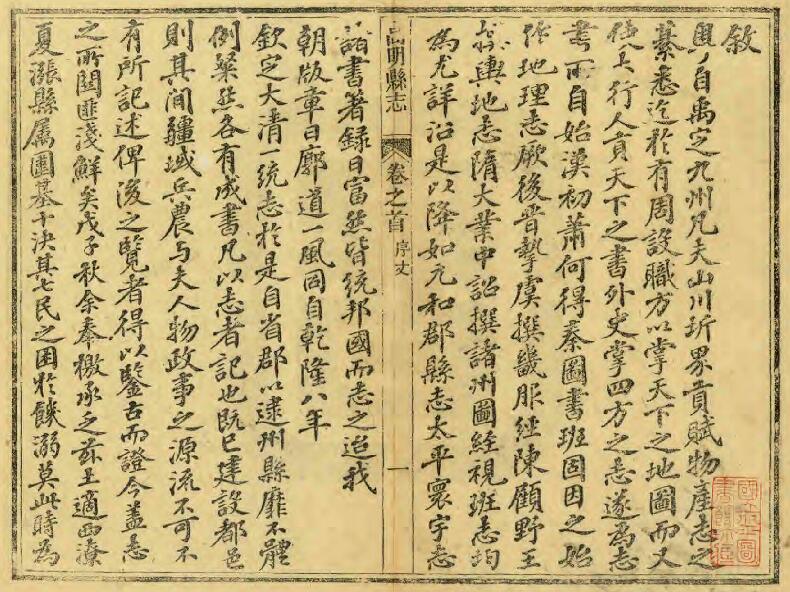 敘
粤自禹定九州凡夫山川圻界貢賦物產志之
綦悉迄於有周設職方以掌天下之地圖而又
使大行人貢天下之書外史掌四方之志遂為志
書所自始漢初蕭何得秦圖書班固因之始
作地理志厥後晉摯虞撰畿服經陳顧野王
輿地志隋大業中詔撰諸州圖經視班志均
為尤詳沿是以降如元和郡縣志太平寰宇志
高明縣志 卷之首 序文 一
諸書著錄日富然皆統邦國而志之迨我
朝版章日廓道一風同自乾隆八年
欽定大清一統志於是自省郡以逮州縣靡不體
例粲然各有成書凡以志者記也既已建設都邑
則其間疆域兵農与夫人物政事之源流不可不
有所記述俾後之覽者得以鑒古而證今蓋志
之所關匪淺鮮矣戊子秋余奉檄承乏茲土適西潦
夏漲縣屬圍基十決其七民之困於饑溺莫此時為